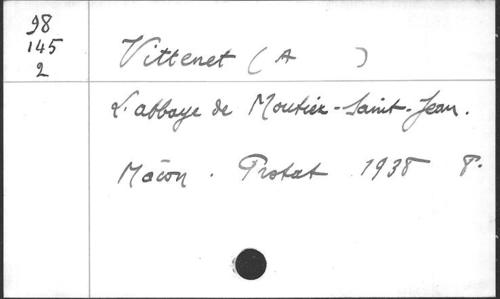 98
145
2
Vittenet (A )
L'abbaye de Moutier-Saint-Jean.
Mâcon. Protat 1938 8°.